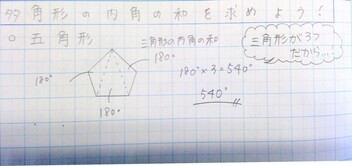 多角形の内角の和を求めよう!
○五角形
三角形の内角の和
180°
180°
180°
180°×3=540°
540°
三角形が3つ
だから…